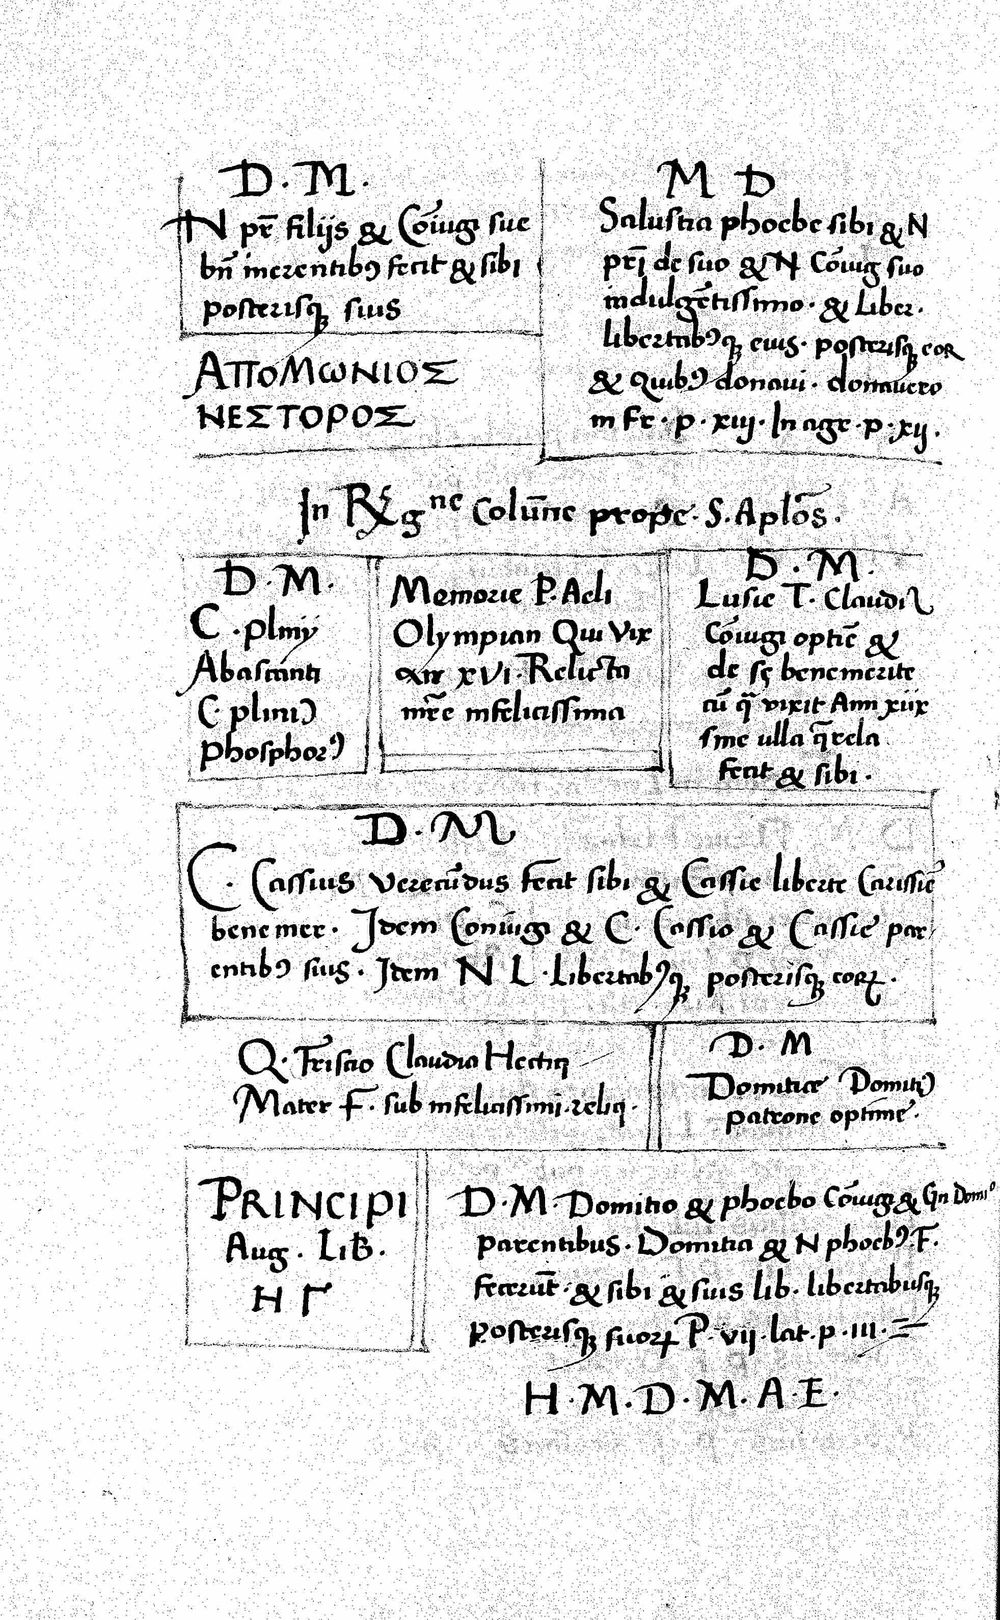 D. M.
N pr̄ filijs & Cōiugi sue
bn̄ merentibꝰ fecit & sibi
posterisqꝫ suis
ΑΠΟΜΩΝΙΟΣ
ΝΕΣΤΟΡΟΣ
M D
Salustia phoebe sibi & N
pr̄i de suo & N Cōiug suo
indulgētissimo. & Liber.
libertabꝰqꝫ eius. posterisqꝫ eoR
& Quibꝰ donaui. donauero
in Fr. p. xiij. In agr. p. xij.
In gne Colūne prope. S. Aplōs.
D. M.
C. plinij
Abascanti
C. pliniꝰ
phosphorꝰ
Memorie P. Aeli
Olympian Qui Vix
xvi. Relicta
mr̄e infelicissima
D. M.
Lusie T. Claudi
Cōiugi optiē &
de sę benemerite
cū q̄ vixit Ann xiix
sine ulla q̄rela
fecit & sibi.
D. M
C. Cassius Verecūdus fecit sibi & Cassie liberte Carissiē
benemer. Idem Coniūgi & C. Cassio & Cassie par
entibꝰ suis. Idem N L. Libertabꝰqꝫ posterisqꝫ eoꝝ.
Q. Claudia
Mater F. sub infelicissimi.
D. M
Domitice Domitiꝰ
patrone optime.
PRINCIPI
Aug. LiB.
H Γ
D. M. Domitio & phoebo Cōiug & Gn Domiᵒ
parentibus. Domitia & N phoebꝰ. F.
fecerūt. & sibi & suis lib. libertabusqꝫ
posterisqꝫ suoꝝ P. vij. lat. p. iii.
H. M. D. M. A. E.